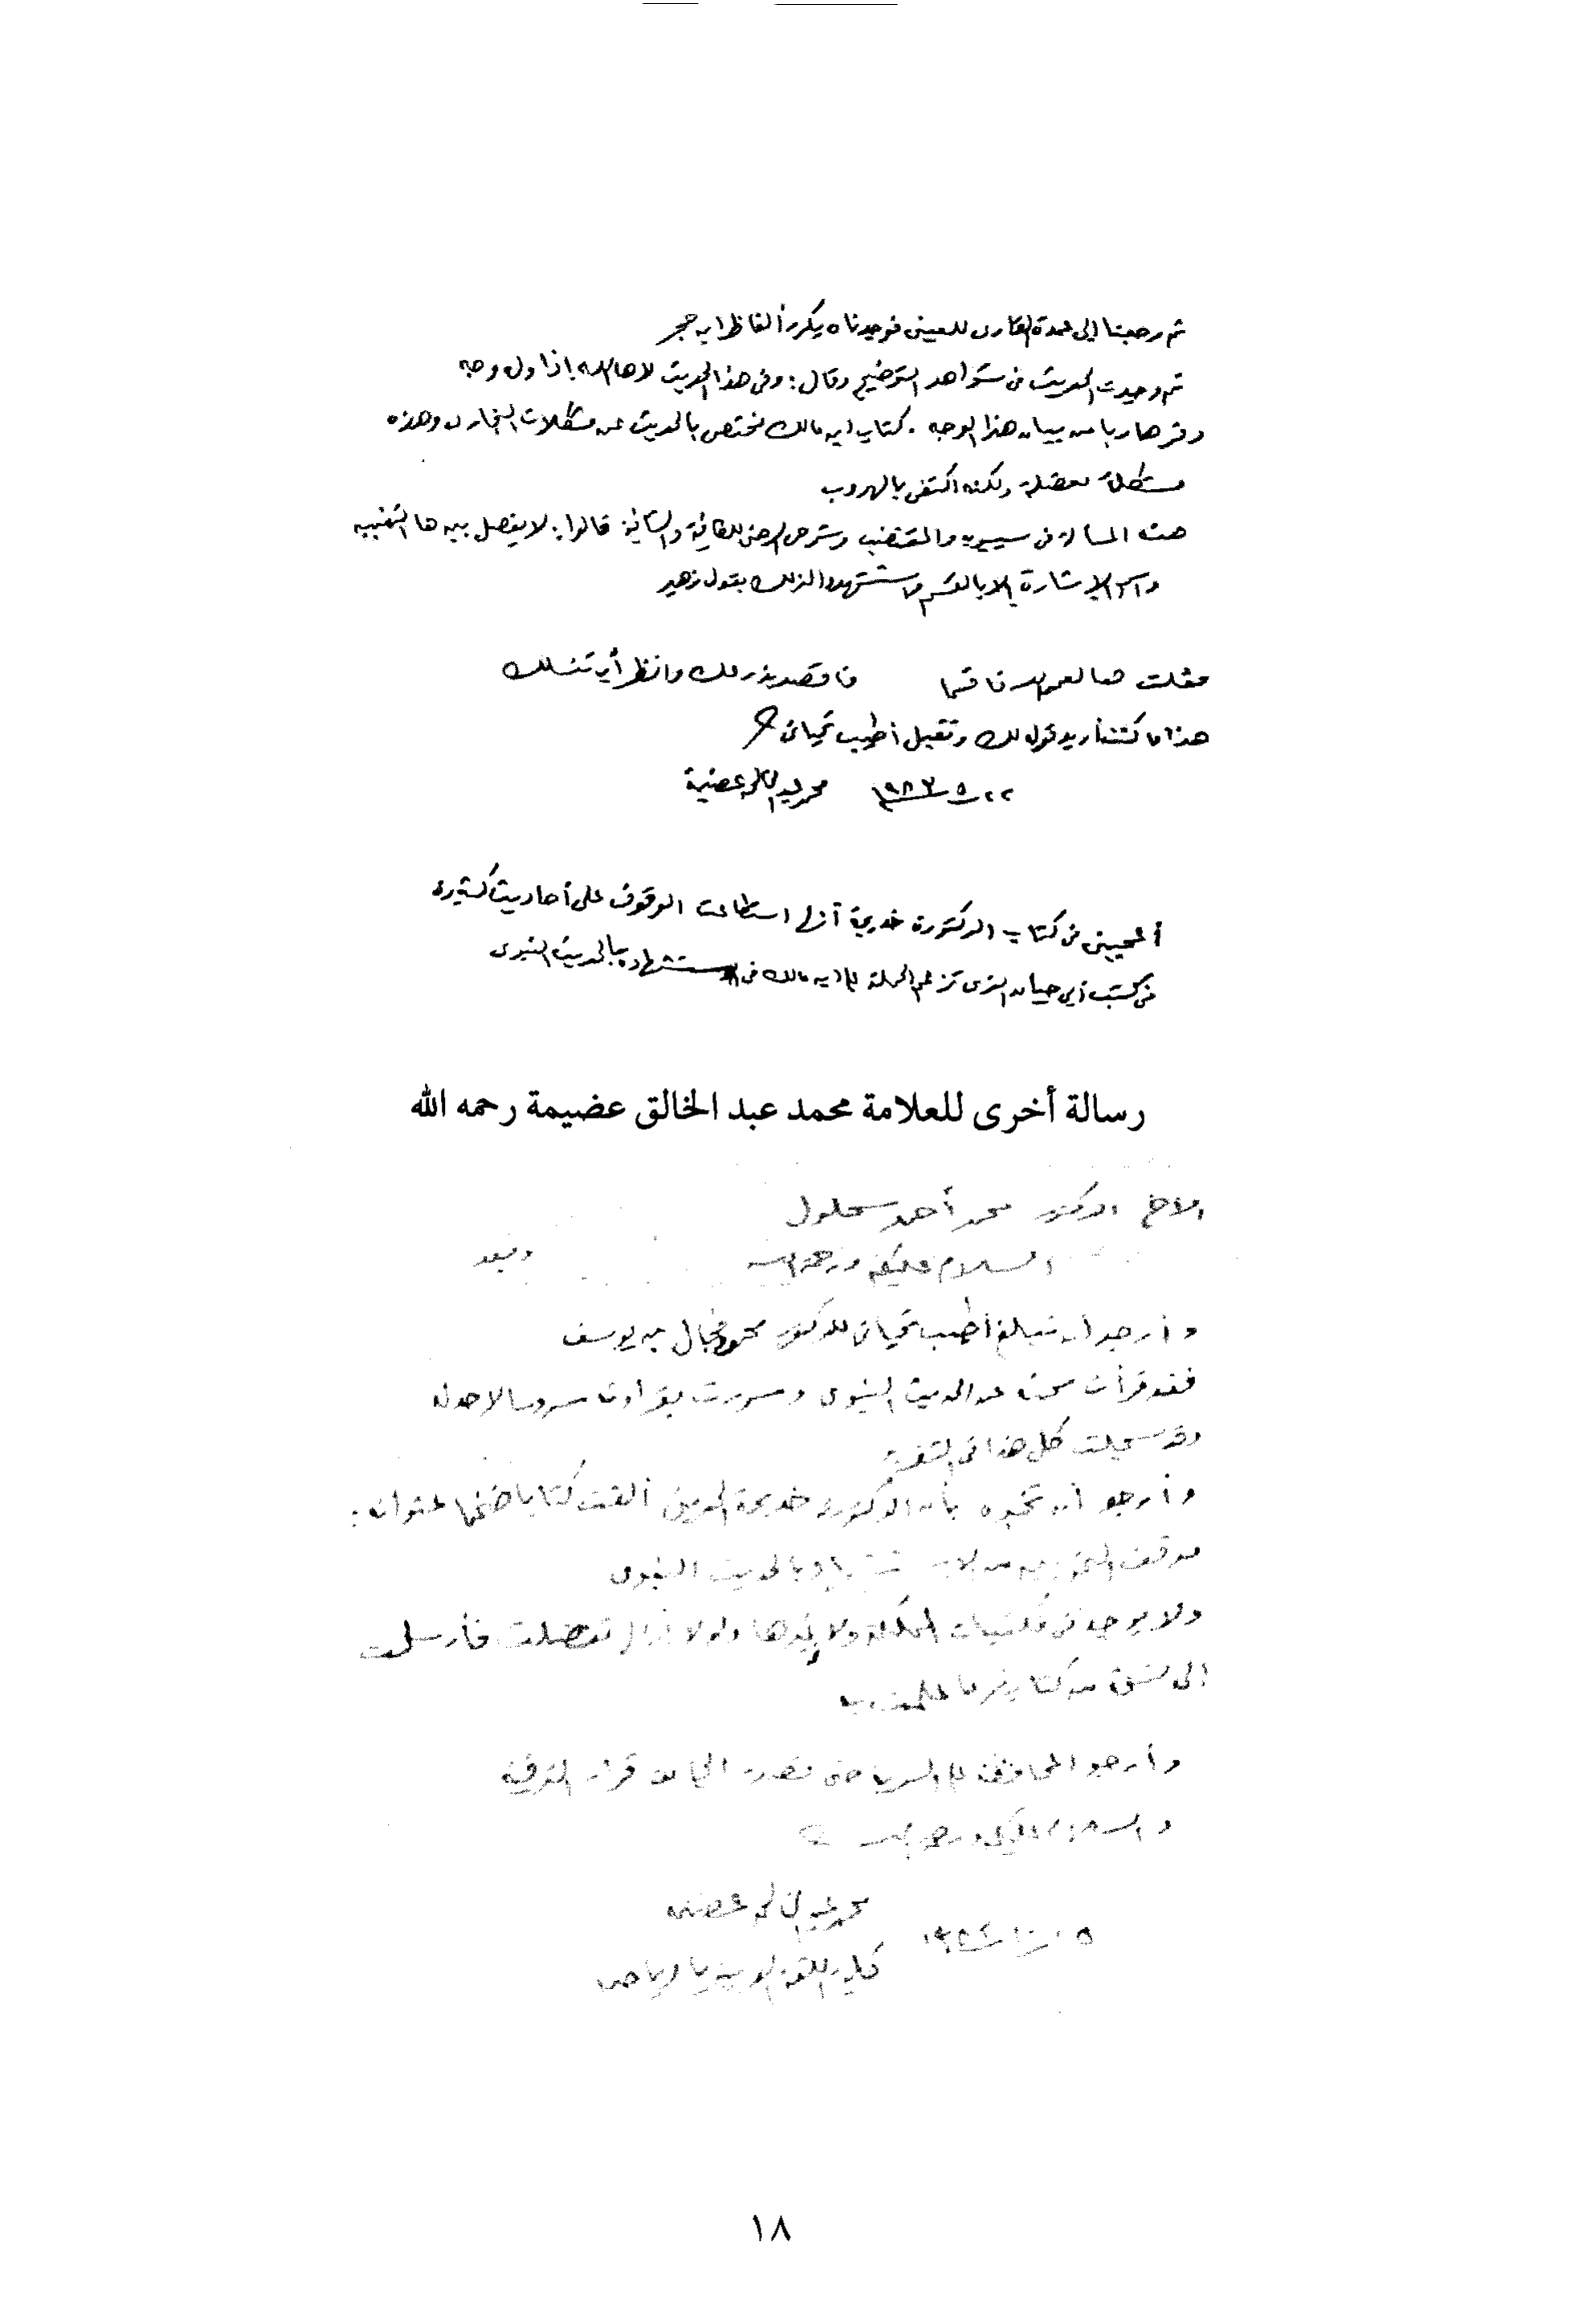 ثم رجعنا إلى عمدة القارى للعينى فوجدناه يكرر ألفاظ ابن حجر
ثم وجدت الحديث فى شواهد التوضيح وقال: وفى هذا الحديث لاها الله إذا ولى وجه
وفر هاربا من بيان هذا الوجه . كتاب ابن مالك مختص بالحديث عن مشكلات البخارى وهذه
مشكلة معضلة ولكنه اكتفى بالهروب
هذه المسألة فى سيبويه والمقتضب وشرح الرضى للكافية والشافية قالوا: لا يفصل بين ها التنبيه
واسم الإشارة إلا بالقسم واستشهدوا لذلك بقول زهير
لعمر الله ذا قسما فاقصد بذرعك وانظر أين تنسلك
هذا ما كنت أريد قوله لك وتقبل أطيب تحياتى
٢٢ ٥ ١٩٨٣ محمد عبد الخالق عضيمة
أعجبنى فى كتاب الدكتورة خديجة أنها استطاعت الوقوف على أحاديث كثيرة
فى كتب أبى حيان الذى تزعم الحملة على ابن مالك فى استشهاده بالحديث النبوى
رسالة أخرى للعلامة محمد عبد الخالق عضيمة رحمه الله
الأخ الدكتور محمد أحمد سحلول
السلام عليكم ورحمة الله وبعد
وأرجو أن تبلغ أطيب تحياتى للدكتور محمود فجال يوسف
فقد قرأت عن الحديث النبوى وسررت بقراءته سرورا لا حد له
وقد سجلت كل هذا فى
وأرجو أن تخبره بأن الدكتورة خديجة الحديثى ألفت كتابا ضخما عنوانه:
موقف النحويين من الاستشهاد بالحديث النبوى
ولا يوجد فى مكتبات المملكة ولا غيرها تفضلت فأرسلت
إلى نسخة من كتابها ما علمت به
وأرجو المحافظة على السرية حتى تصدر الجامعة قرار الترقية
والسلام عليكم ورحمة الله
محمد عبد الخالق عضيمة
كلية اللغة العربية بالرياض
١٨